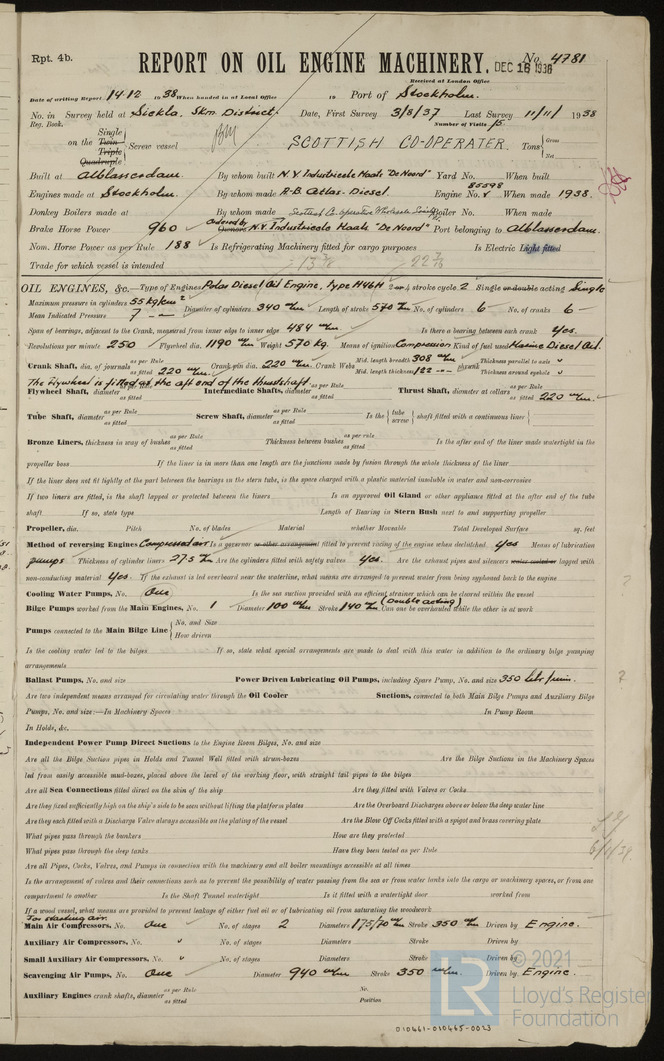 Rpt. 4b.
REPORT ON OIL ENGINE MACHINERY.
No. 4781
Received at London Office DEC 16 1938
Date of writing Report 14.12 1938 When handed in at Local Office 19 Port of Stockholm.
No. in Reg. Book. Survey held at Sickla, Skm. District. Date, First Survey 3/8/37 Last Survey 11/11/ 1938
Number of Visits 15.
on the Single Twin Triple Quadruple Screw vessel SCOTTISH CO-OPERATER. Tons Gross Net
Built at Alblasserdam. By whom built N.V. Industrieele Maats "De Noord" Yard No. When built
Engines made at Stockholm. By whom made A-B. Atlas-Diesel. Engine No. 85598 When made 1938.
Donkey Boilers made at By whom made Boiler No. When made
Brake Horse Power 960 Owners ordered by N.V. Industrieele Maats "De Noord" Port belonging to Alblasserdam.
Nom. Horse Power as per Rule 188 Is Refrigerating Machinery fitted for cargo purposes Is Electric Light fitted
Trade for which vessel is intended 13 3/8 22 7/16
OIL ENGINES, &c.—Type of Engines Polar Diesel Oil Engine, Type H46H 2 or 4 stroke cycle 2 Single or double acting Single
Maximum pressure in cylinders 55 kg/cm² Diameter of cylinders 340 m/m. Length of stroke 570 m/m No. of cylinders 6 No. of cranks 6
Mean Indicated Pressure 7
Span of bearings, adjacent to the Crank, measured from inner edge to inner edge 484 m/m. Is there a bearing between each crank Yes.
Revolutions per minute 250 Flywheel dia. 1190 m/m Weight 570 kg. Means of ignition Compression Kind of fuel used Marine Diesel Oil.
Crank Shaft, dia. of journals as per Rule as fitted 220 m/m. Crank pin dia. 220 m/m. Crank Webs Mid. length breadth 308 m/m Mid. length thickness 122 shrunk Thickness parallel to axis Thickness around eyehole
The flywheel is fitted at the aft end of the thrustshaft.
Flywheel Shaft, diameter as per Rule as fitted Intermediate Shafts, diameter as per Rule as fitted Thrust Shaft, diameter at collars as per Rule as fitted 220 m/m.
Tube Shaft, diameter as per Rule as fitted Screw Shaft, diameter as per Rule as fitted Is the tube screw shaft fitted with a continuous liner
Bronze Liners, thickness in way of bushes as per Rule as fitted Thickness between bushes as per rule as fitted Is the after end of the liner made watertight in the
propeller boss If the liner is in more than one length are the junctions made by fusion through the whole thickness of the liner
If the liner does not fit tightly at the part between the bearings in the stern tube, is the space charged with a plastic material insoluble in water and non-corrosive
If two liners are fitted, is the shaft lapped or protected between the liners Is an approved Oil Gland or other appliance fitted at the after end of the tube
shaft If so, state type Length of Bearing in Stern Bush next to and supporting propeller
Propeller, dia. Pitch No. of blades Material whether Moveable Total Developed Surface sq. feet
Method of reversing Engines Compressed air Is a governor or other arrangement fitted to prevent racing of the engine when declutched Yes Means of lubrication
pumps Thickness of cylinder liners 27.5 m/m Are the cylinders fitted with safety valves Yes. Are the exhaust pipes and silencers water cooled or lagged with
non-conducting material Yes. If the exhaust is led overboard near the waterline, what means are arranged to prevent water from being syphoned back to the engine
Cooling Water Pumps, No. One Is the sea suction provided with an efficient strainer which can be cleared within the vessel
Bilge Pumps worked from the Main Engines, No. 1 Diameter 100 m/m Stroke 140 m/m (Double acting) Can one be overhauled while the other is at work
Pumps connected to the Main Bilge Line No. and Size How driven
Is the cooling water led to the bilges If so, state what special arrangements are made to deal with this water in addition to the ordinary bilge pumping
arrangements
Ballast Pumps, No. and size Power Driven Lubricating Oil Pumps, including Spare Pump, No. and size 350 litr/min.
Are two independent means arranged for circulating water through the Oil Cooler Suctions, connected to both Main Bilge Pumps and Auxiliary Bilge
Pumps, No. and size:—In Machinery Spaces In Pump Room
In Holds, &c.
Independent Power Pump Direct Suctions to the Engine Room Bilges, No. and size
Are all the Bilge Suction pipes in Holds and Tunnel Well fitted with strum-boxes Are the Bilge Suctions in the Machinery Spaces
led from easily accessible mud-boxes, placed above the level of the working floor, with straight tail pipes to the bilges
Are all Sea Connections fitted direct on the skin of the ship Are they fitted with Valves or Cocks
Are they fixed sufficiently high on the ship's side to be seen without lifting the platform plates Are the Overboard Discharges above or below the deep water line
Are they each fitted with a Discharge Valve always accessible on the plating of the vessel Are the Blow Off Cocks fitted with a spigot and brass covering plate
What pipes pass through the bunkers How are they protected
What pipes pass through the deep tanks Have they been tested as per Rule
Are all Pipes, Cocks, Valves, and Pumps in connection with the machinery and all boiler mountings accessible at all times
Is the arrangement of valves and their connections such as to prevent the possibility of water passing from the sea or from water tanks into the cargo or machinery spaces, or from one
compartment to another Is the Shaft Tunnel watertight Is it fitted with a watertight door worked from
If a wood vessel, what means are provided to prevent leakage of either fuel oil or of lubricating oil from saturating the woodwork
For starting air.
Main Air Compressors, No. One No. of stages 2 Diameters 175/70 m/m Stroke 350 m/m Driven by Engine.
Auxiliary Air Compressors, No. " No. of stages Diameters Stroke Driven by
Small Auxiliary Air Compressors, No. " No. of stages Diameters Stroke Driven by
Scavenging Air Pumps, No. One Diameter 940 m/m Stroke 350 m/m. Driven by Engine.
Auxiliary Engines crank shafts, diameter as per Rule as fitted No. Position
© 2021
LR
Lloyd's Register
Foundation
010461-010465-0023